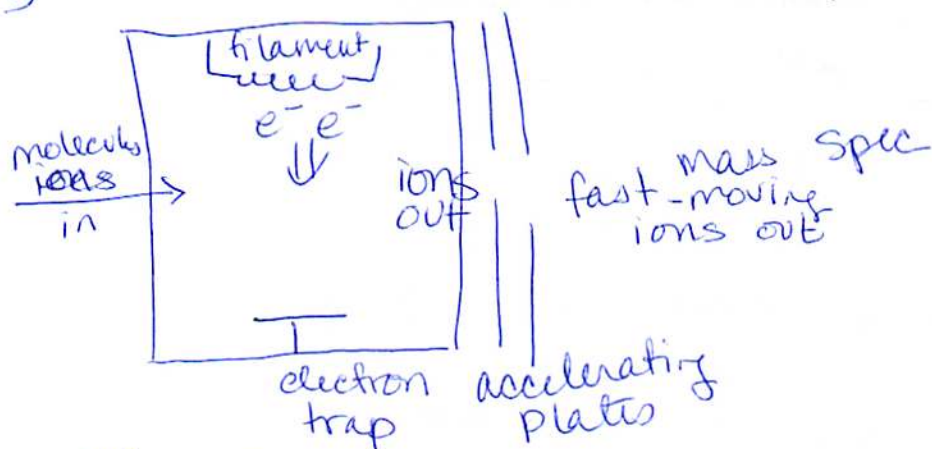 filament
e⁻ e⁻
molecules
ions
in
ions
out
mass spec
fast-moving
ions out
electron
trap
accelerating
plates